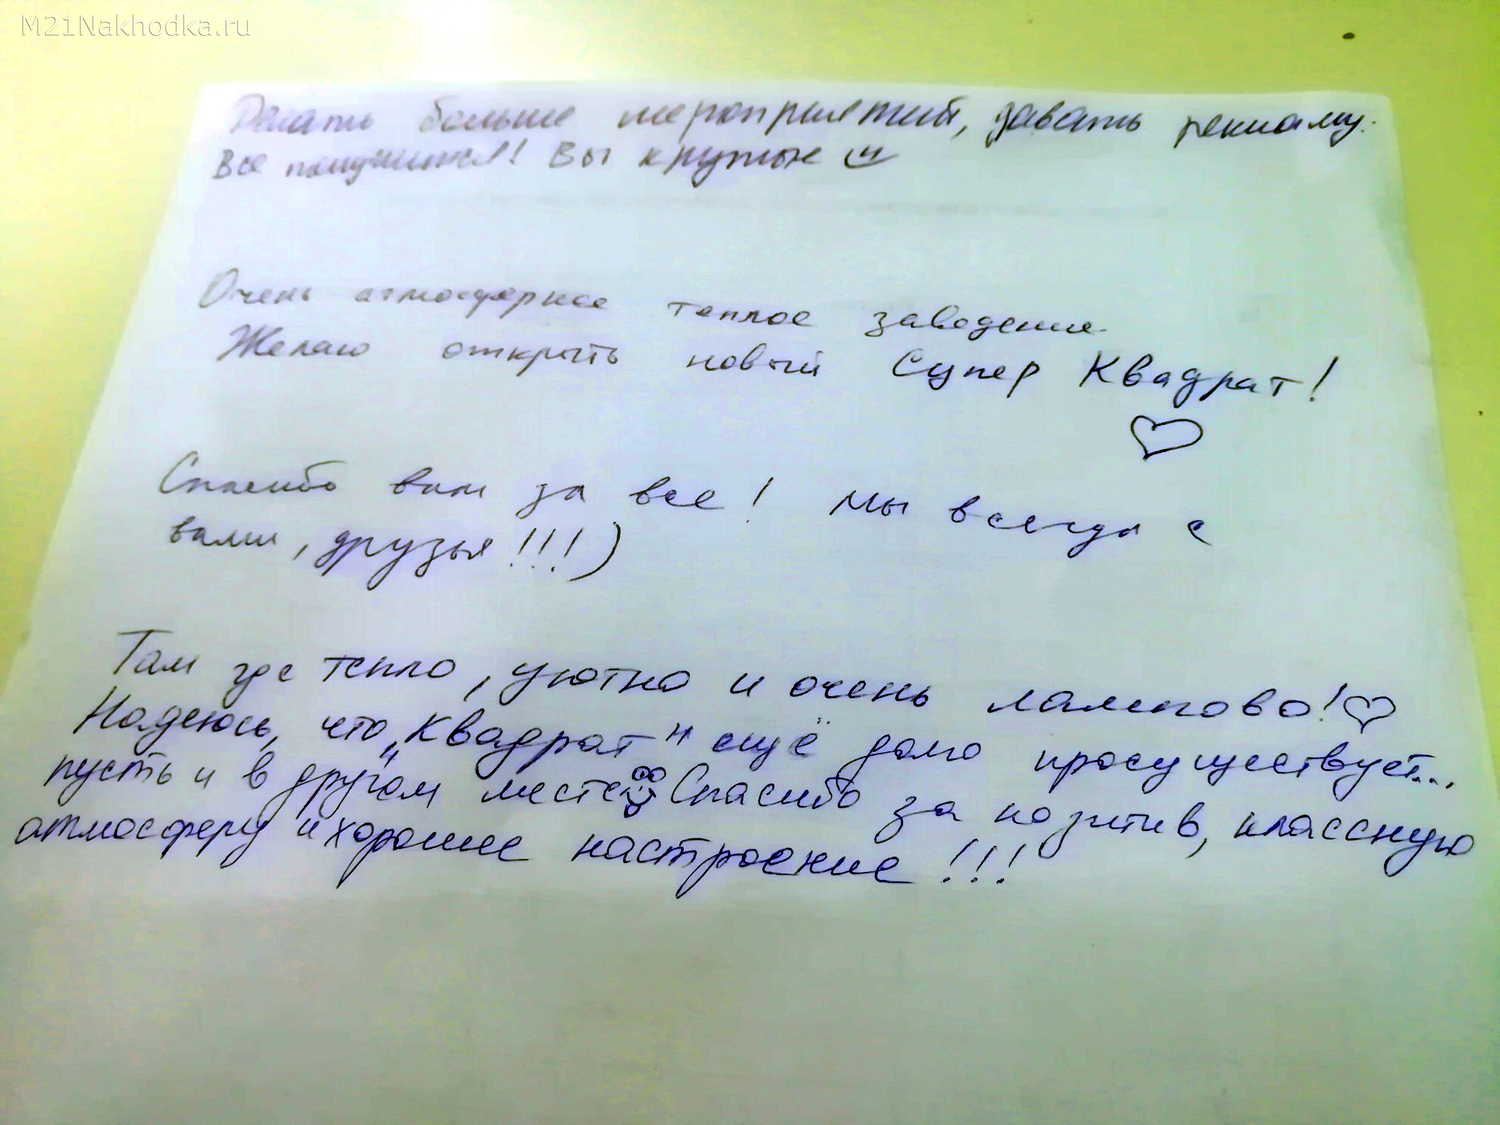 M21Nakhodka.ru
Делать больше мероприятий, давать рекламу.
Все получится! Вы крутые
Очень атмосферное теплое заведение
Желаю открыть новый Супер Квадрат!
Спасибо вам за все! Мы всегда с
вами, друзья!!!)
Там где тепло, уютно и очень лампово!
Надеюсь, что „Квадрат" ещё долго просуществует...
пусть и в другом месте Спасибо за позитив, классную
атмосферу и хорошее настроение!!!